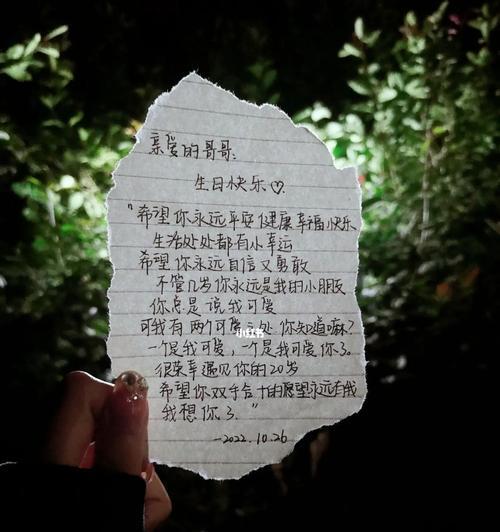 亲爱的哥哥:
生日快乐♡.
"希望你永远平安健康幸福快乐
生活处处都有小幸运
希望你永远自信又勇敢
不管几岁你永远是我的小朋友
你总是说我可爱
可我有两个可爱之处 你知道嘛?
一个是我可爱,一个是我可爱你了。
很荣幸遇见你的20岁
希望你双手合十的愿望永远有我
我想你了"
—2022.10.26
小红书